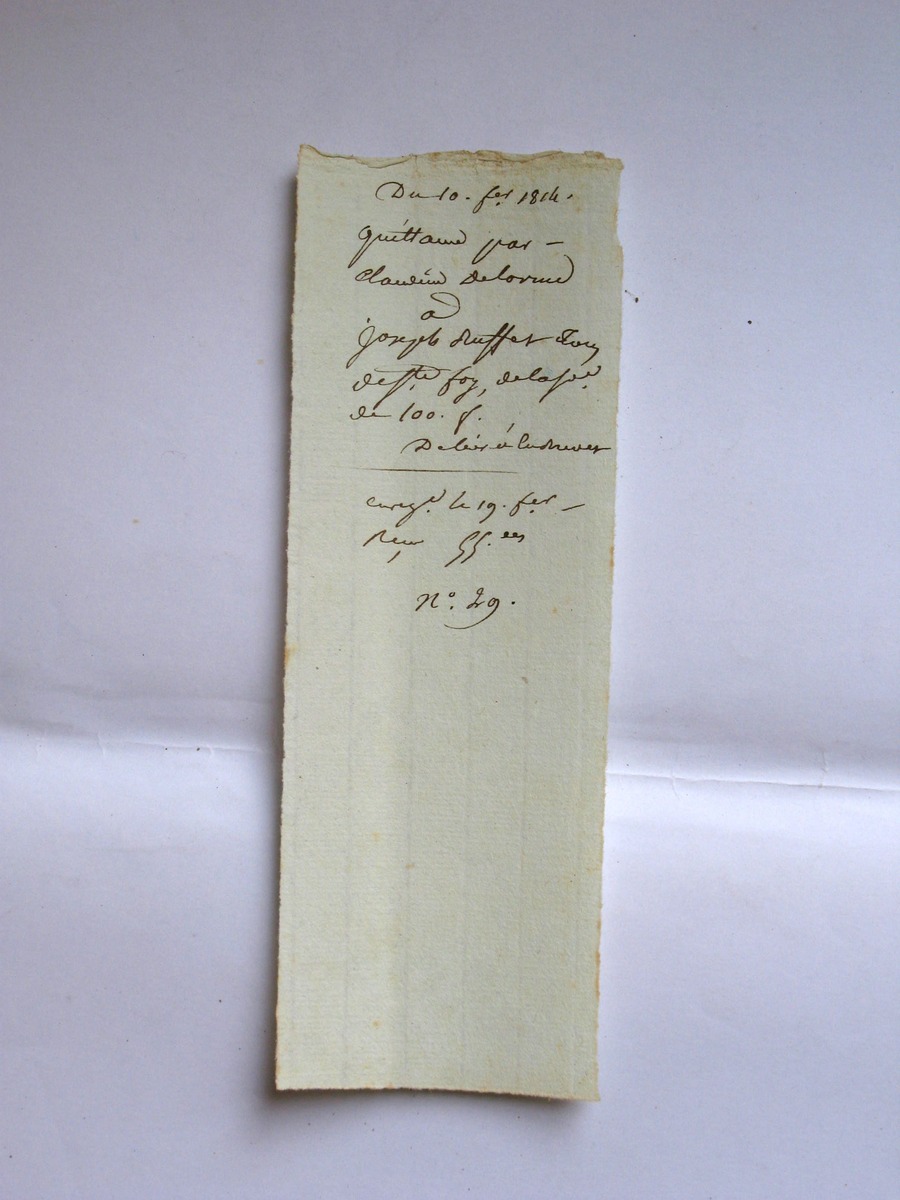 Du 10. fer 1814.
quittance par —
Claudine Delorme
a
joseph Ruffet
de Ste foy, de la so.e
de 100. f.
Delivré
enregé. le 19. fer —
Reçu 55.ces
N°. 29.